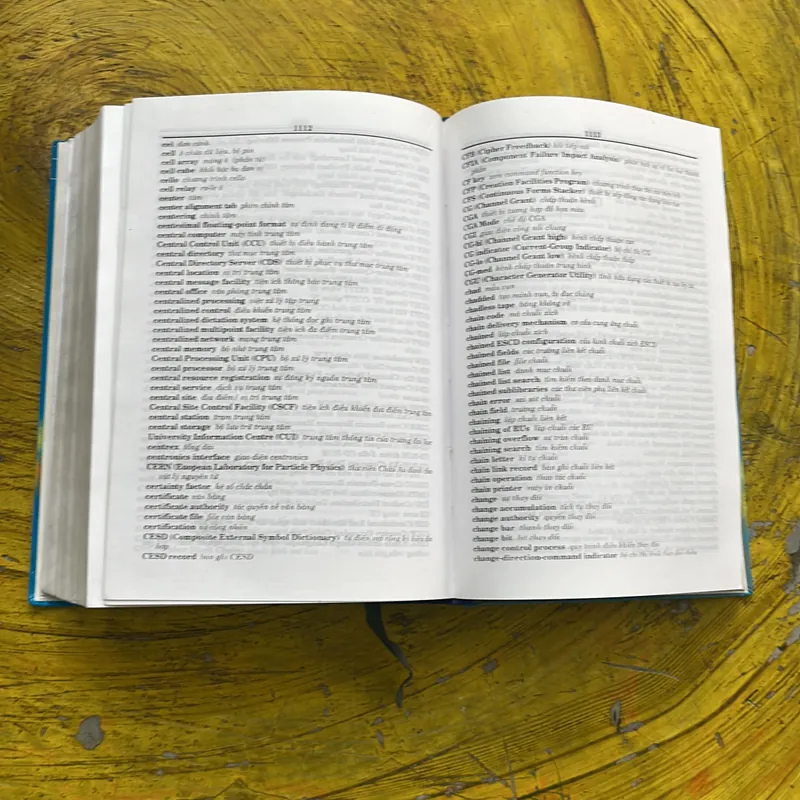 1112
cell ô chứa dữ liệu, bộ pin
cell array mảng ô (phần tử)
cell cube khối bốc ba đơn vị
cello chương trình cello
cell relay rơle ô
center tâm
center alignment tab phím chỉnh tâm
centering chỉnh tâm
centesimal floating-point format sự định dạng tỉ lệ điểm di động
central computer máy tính trung tâm
Central Control Unit (CCU) thiết bị điều hành trung tâm
central directory thư mục trung tâm
Central Directory Server (CDS) thiết bị phục vụ thư mục trung tâm
central location vị trí trung tâm
central message facility tiện ích thông báo trung tâm
central office văn phòng trung tâm
centralized processing việc xử lý tập trung
centralized control điều khiển trung tâm
centralized dictation system hệ thống đọc ghi trung tâm
centralized multipoint facility tiện ích đa điểm trung tâm
centralized network mạng trung tâm
central memory bộ nhớ trung tâm
Central Processing Unit (CPU) bộ xử lý trung tâm
central processor bộ xử lý trung tâm
central resource registration sự đăng ký nguồn trung tâm
central service dịch vụ trung tâm
central site địa điểm / vị trí trung tâm
Central Site Control Facility (CSCF) tiện ích điều khiển địa điểm trung tâm
central station trạm trung tâm
central storage bộ lưu trữ trung tâm
University Information Centre (CUI) trung tâm thông tin của trường đại học
centrex tổng đài
centronics interface giao diện centronics
CERN (European Laboratory for Particle Physics) thư viện Châu Âu dành cho
vật lý nguyên tử
certainty factor hệ số chắc chắn
certificate văn bằng
certificate authority tác quyền về văn bằng
certificate file file văn bằng
certification sự công nhận
CESD (Composite External Symbol Dictionary) tự điển mở rộng ký hiệu
hợp
CESD record bản ghi CESD
1113
CFB (Cipher Freedback)
CFIA (Component Failure Impact Analysis)
phần
CF key xem command function key
CFP (Creation Facilities Program)
CFS (Continuous Forms Stacker)
CG (Channel Grant) chấp thuận kênh
CGA thiết bị tương hợp đồ họa màu
CGA Mode chế độ CGA
CGI giao diện cổng nối chung
CG-hi (Channel Grant high) kênh chấp thuận cao
CG indicator (Current-Group Indicator) bộ chỉ thị CG
CG-lo (Channel Grant low) kênh chấp thuận thấp
CG-med kênh chấp thuận trung bình
CGU (Character Generator Utility)
chad mẩu vụn
chadded tạo mảnh vụn, bị đục thủng
chadless tape băng không vỡ
chain code mã chuỗi xích
chain delivery mechanism cơ cấu cung ứng chuỗi
chained lớp chuỗi xích
chained ESCD configuration cấu hình chuỗi xích ESCD
chained fields các trường liên kết chuỗi
chained file file chuỗi
chained list danh mục chuỗi
chained list search tìm kiếm theo danh mục chuỗi
chained sublibraries các thư viện phụ liên kết chuỗi
chain error sai sót chuỗi
chain field trường chuỗi
chaining lập chuỗi liên kết
chaining of RUs lập chuỗi các RU
chaining overflow sự tràn chuỗi
chaining search tìm kiếm chuỗi
chain letter kí tự chuỗi
chain link record bản ghi chuỗi liên kết
chain operation thao tác chuỗi
chain printer máy in chuỗi
change sự thay đổi
change accumulation tích tụ thay đổi
change authority quyền thay đổi
change bar thanh thay đổi
change bit bit thay đổi
change control process quy trình điều khiển thay đổi
change-direction-command indicator